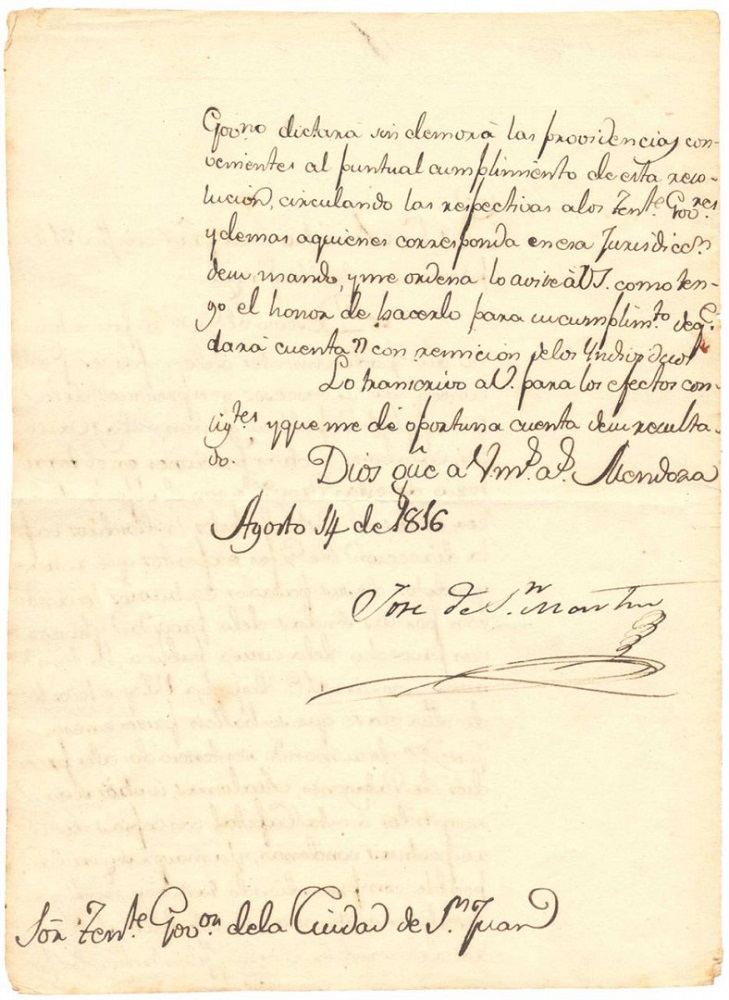 Govno dictará sin demora las providencias con-
venientes al puntual cumplimiento de esta reso-
lucion, circulando las respectivas alos Tente. Govres.
y demas aquienes corresponda enesa Jurisdiccn.
desu mando, y me ordena lo avise á VS. como ten-
go el honor de hacerlo para su cumplimto. deq.
dará cuenta con remicion delos
Lo transcrivo a V. para los efectos con-
sigtes. y que me dé oportuna cuenta desu resulta-
do.
Dios gue a Vmd. as. Mendoza
Agosto 14 de 1816
Jose de Sn. Martin
Sor. Tente. Govor. dela Ciudad de Sn Juan